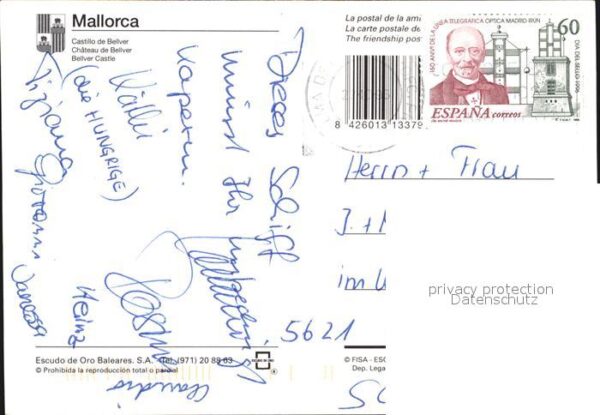 Mallorca
Castillo de Bellver
Château de Bellver
Bellver Castle
La postal de la ami
La carte postale de
The friendship pos
8 426013 13379
150 ANIV. DE LA LINEA TELEGRAFICA OPTICA MADRID-IRUN
60
DIA DEL SELLO 1996
ESPAÑA correos
Dieses Schiff
müsst Ihr unbedingt
kapern.
Willi
(die HUNGRIGE)
Tiziana Giovanni Vanessa
Heinz
Claudio
Herrn + Frau
J. + M
im W
5621
privacy protection
Datenschutz
Escudo de Oro Baleares. S.A. Tel. (971) 20 88 63
© Prohibida la reproducción total o parcial
© FISA - ESC
Dep. Legal